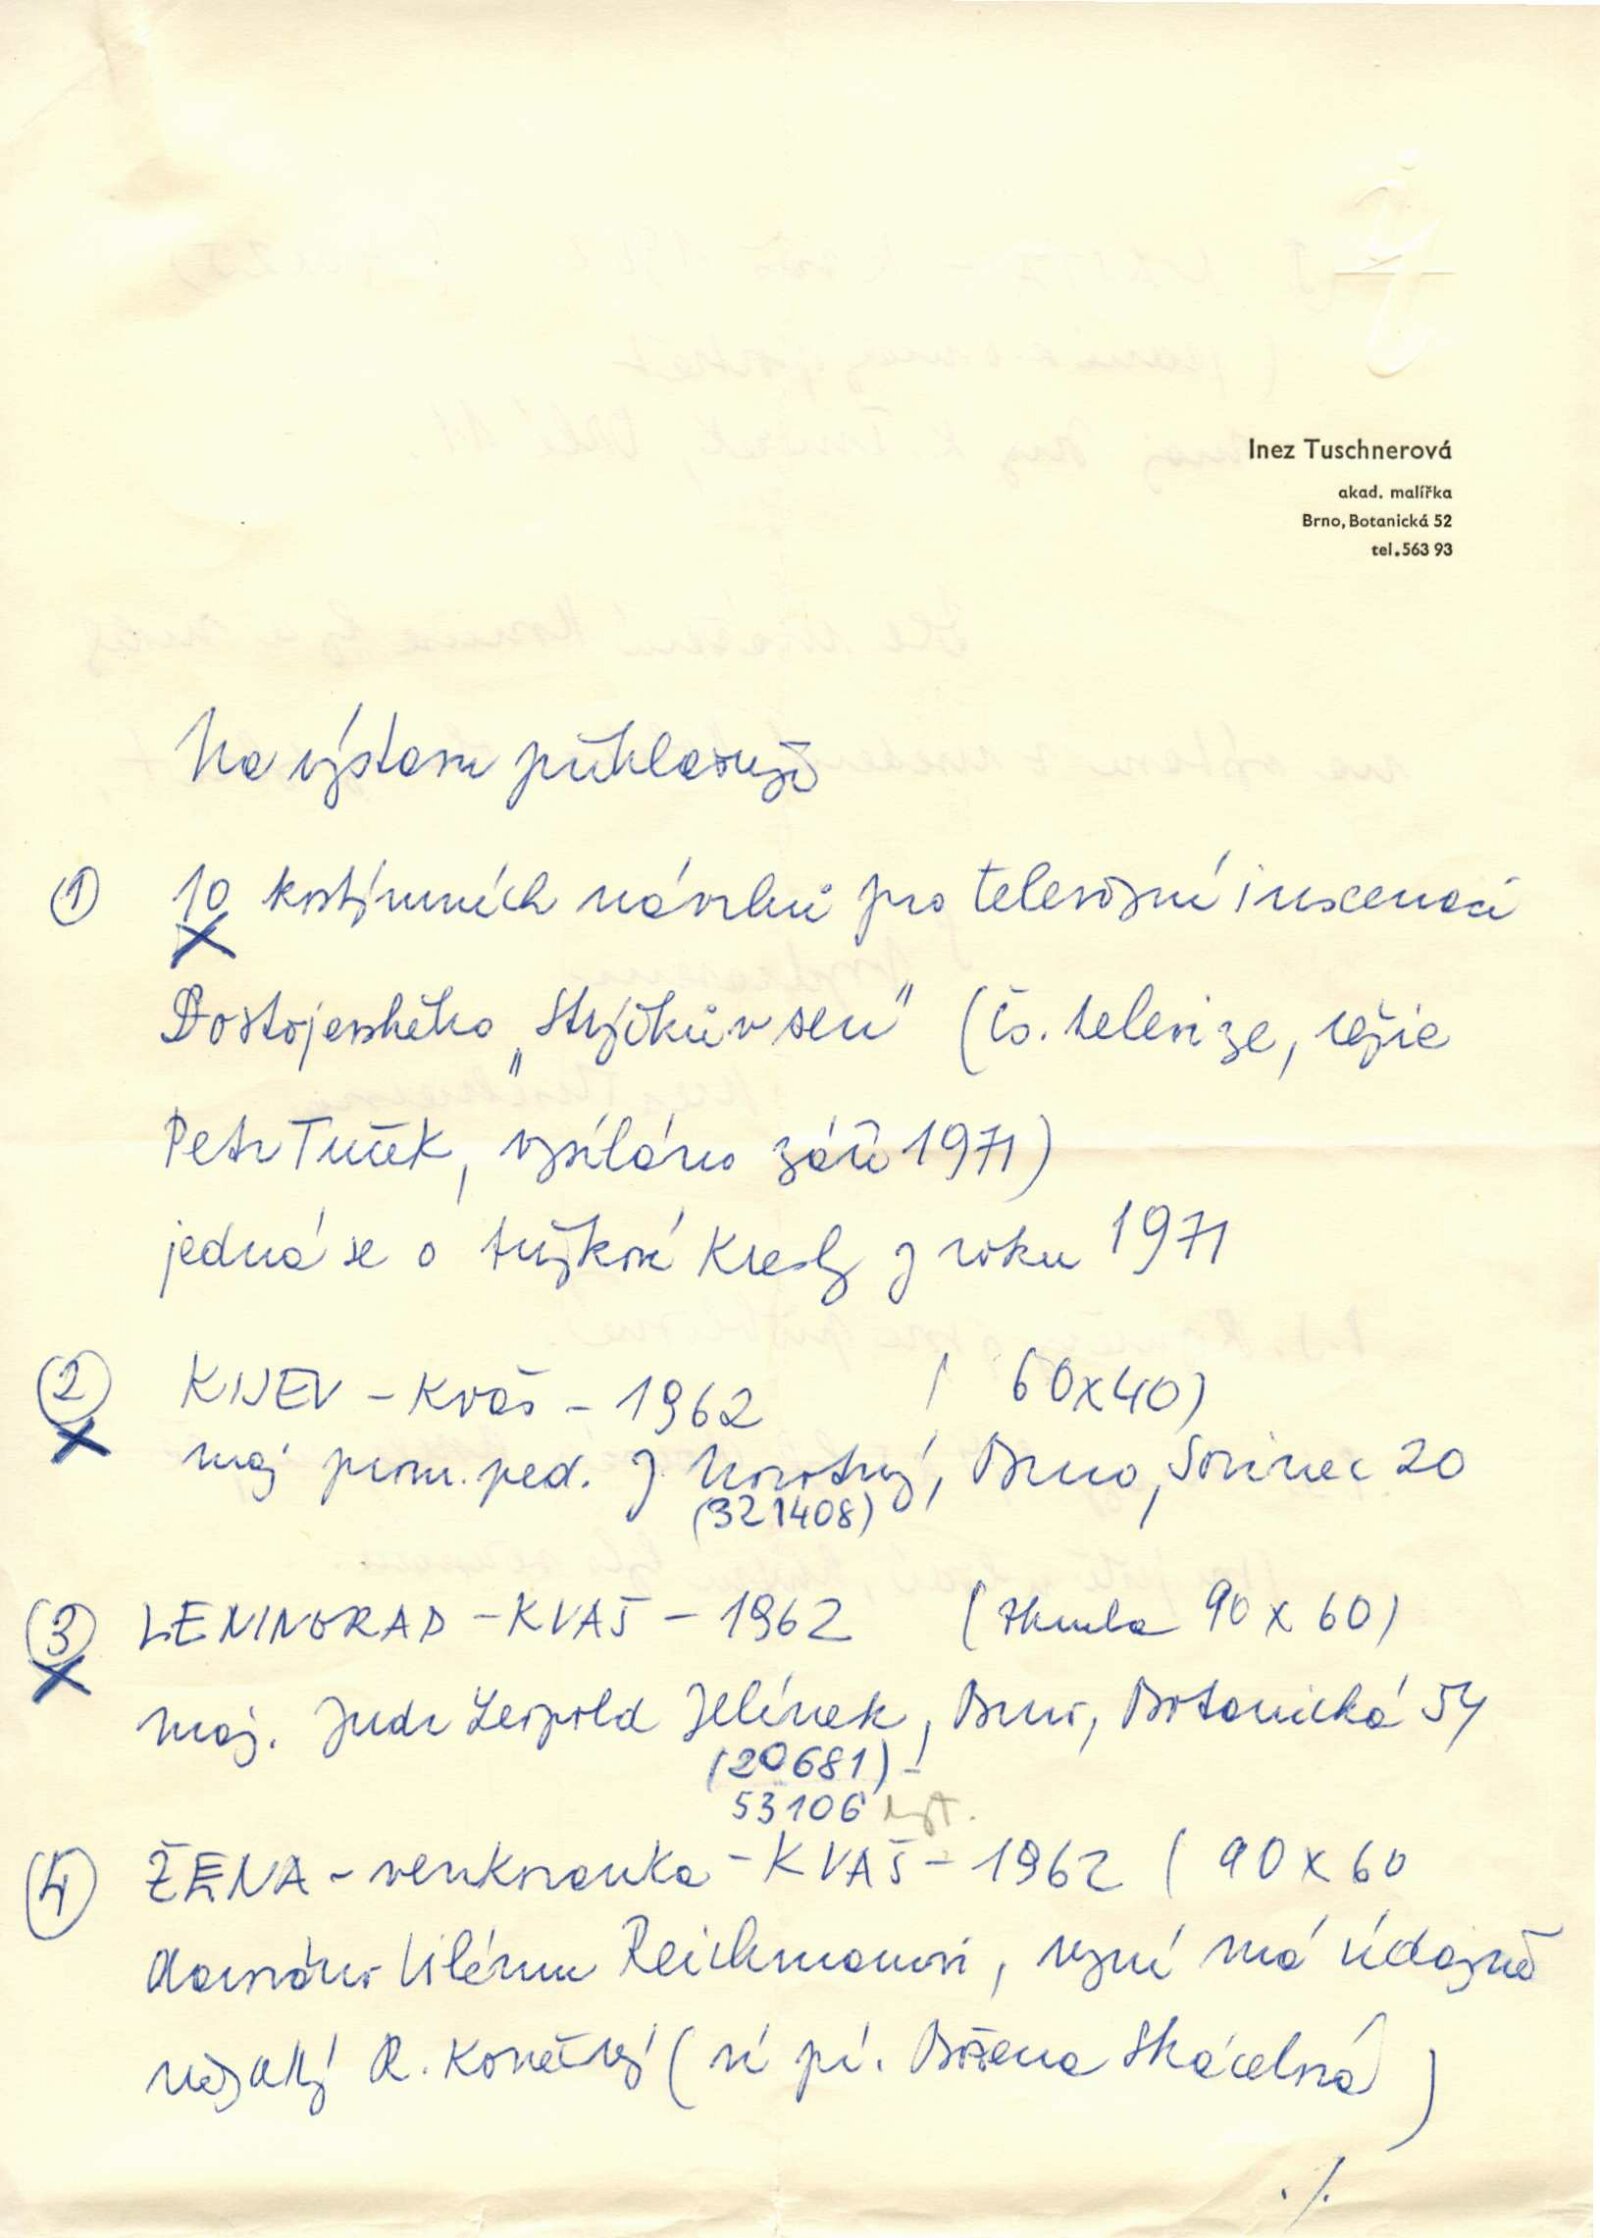 Inez Tuschnerová
akad. malířka
Brno, Botanická 52
tel. 563 93
Na výstavu přihlašuji
① 10 kostýmních návrhů pro televizní inscenaci
Dostojevského „Strýčkův sen" (Čs. televize, režie
Petr Tuček, vysíláno září 1971)
jedná se o tužkové kresby z roku 1971
② KIJEV - Kvaš - 1962 ( 60x40)
maj prom. ped. J. Novotný, Brno, Sovinec 20
(321408)
③ LENINGRAD - KVAŠ - 1962 (zhruba 90 x 60)
maj. Judr Leopold Jelínek, Brno, Botanická 54
(20681) -
53106 byt.
④ ŽENA - venkovanka - KVAŠ - 1962 ( 90 x 60
darováno Vilému Reichmanovi, nyní má údajně
nějaký R. Konečný ( ví pí. Božena Skácelová )
./.